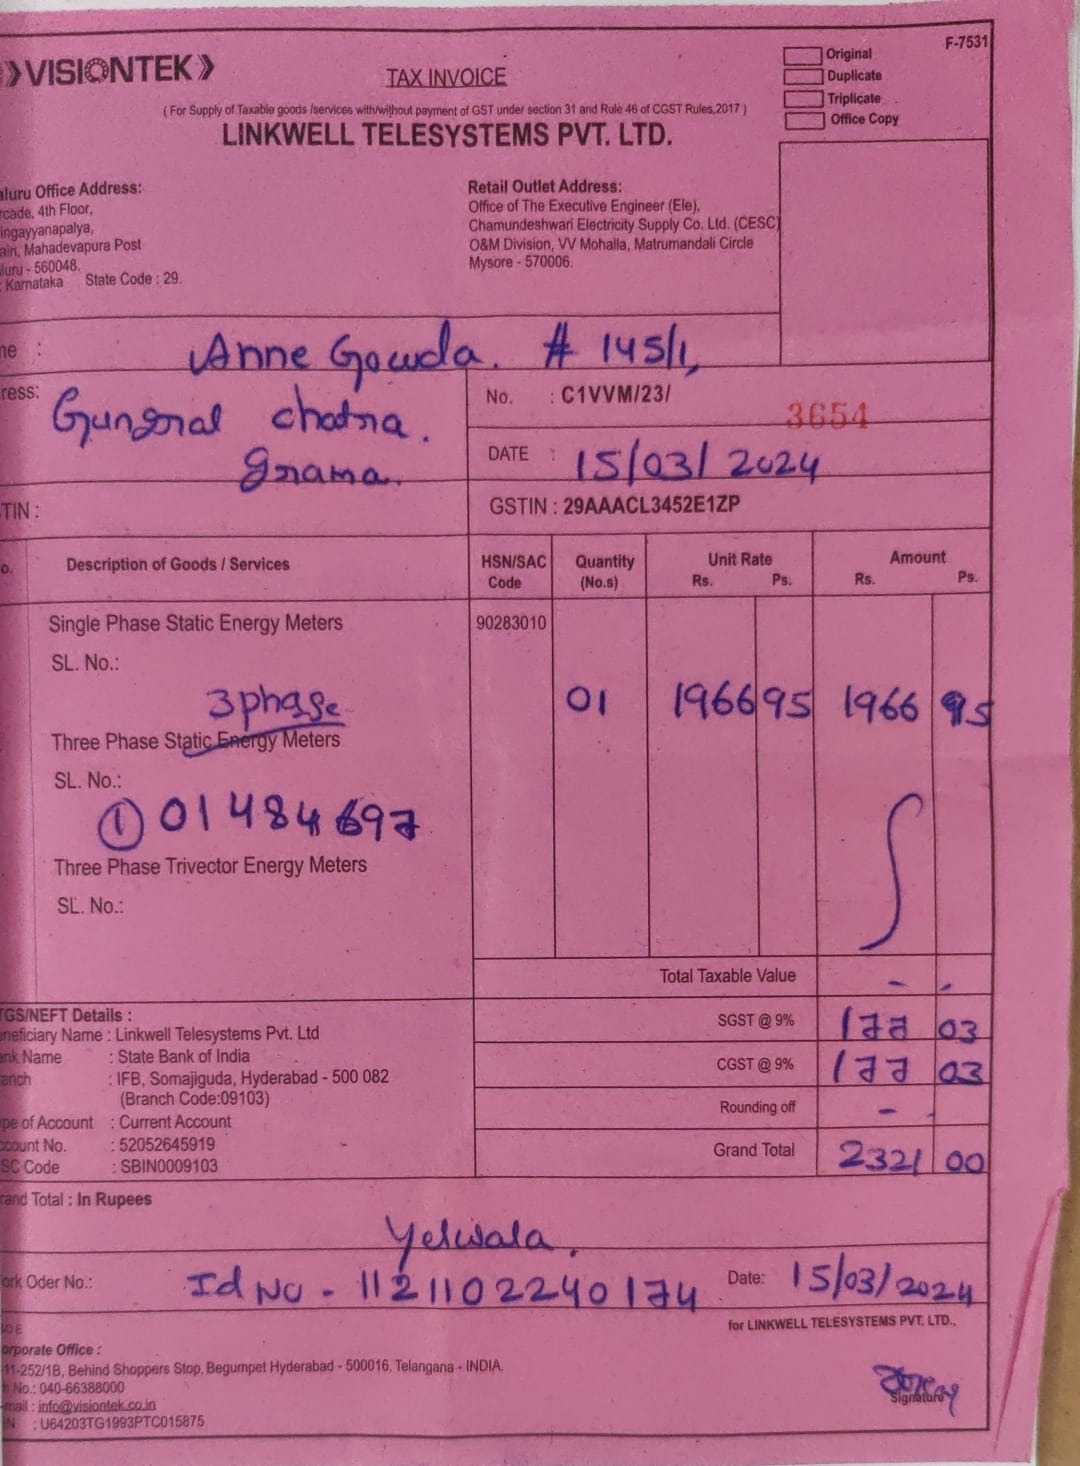 VISIONTEK
TAX INVOICE
F-7531
Original
Duplicate
Triplicate
Office Copy
( For Supply of Taxable goods /services with/without payment of GST under section 31 and Rule 46 of CGST Rules,2017 )
LINKWELL TELESYSTEMS PVT. LTD.
aluru Office Address:
rcade, 4th Floor,
ingayyanapalya,
ain, Mahadevapura Post
luru - 560048.
: Karnataka State Code : 29.
Retail Outlet Address:
Office of The Executive Engineer (Ele),
Chamundeshwari Electricity Supply Co. Ltd. (CESC)
O&M Division, VV Mohalla, Matrumandali Circle
Mysore - 570006.
me : Anne Gowda. # 145/1,
ress: Gungral chatna.
grama.
No. : C1VVM/23/ 3654
DATE : 15/03/2024
TIN :
GSTIN : 29AAACL3452E1ZP
o. Description of Goods / Services HSN/SAC Code Quantity (No.s) Unit Rate Rs. Ps. Amount Rs. Ps.
Single Phase Static Energy Meters 90283010
SL. No.:
3phase 01 1966 95 1966 95
Three Phase Static Energy Meters
SL. No.:
① 01484697
Three Phase Trivector Energy Meters
SL. No.:
Total Taxable Value - -
SGST @ 9% 177 03
CGST @ 9% 177 03
Rounding off -
Grand Total 2321 00
TGS/NEFT Details :
eneficiary Name : Linkwell Telesystems Pvt. Ltd
ank Name : State Bank of India
anch : IFB, Somajiguda, Hyderabad - 500 082
(Branch Code:09103)
pe of Account : Current Account
ccount No. : 52052645919
SC Code : SBIN0009103
rand Total : In Rupees
Yelwala.
ork Oder No.: Id No - 1121102240174 Date: 15/03/2024
for LINKWELL TELESYSTEMS PVT. LTD.,
orporate Office :
11-252/1B, Behind Shoppers Stop, Begumpet Hyderabad - 500016, Telangana - INDIA.
No.: 040-66388000
mail : info@visiontek.co.in
N : U64203TG1993PTC015875
Signature